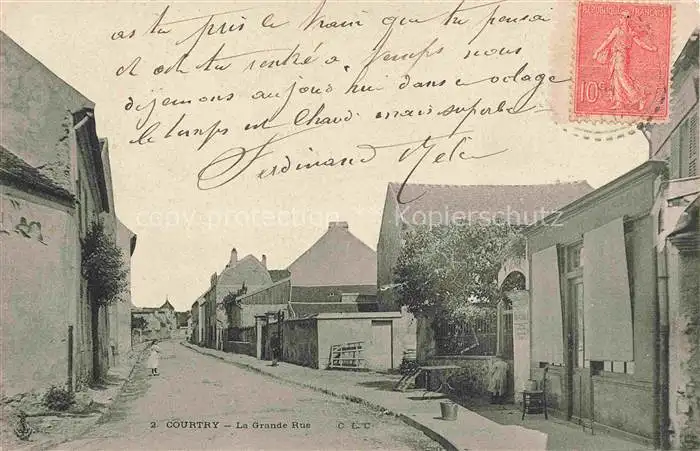 as tu pris le train que tu pensais
et as tu rentré à temps nous
déjeunons aujourd'hui dans
le temps est chaud mais superbe
Ferdinand
REPUBLIQUE FRANÇAISE
10c
copy protection Kopierschutz
2 COURTRY – La Grande Rue C. L. C